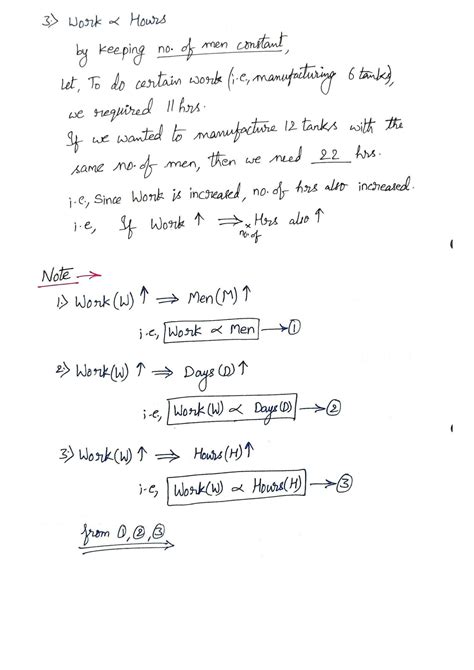 3) Work ∝ Hours
by keeping no. of men constant,
Let, To do certain work (i.e, manufacturing 6 tanks),
we required 11 hrs.
If we wanted to manufacture 12 tanks with the
same no. of men, then we need 22 hrs.
i.e, Since Work is increased, no. of hrs also increased.
i.e, If Work ↑ ⇒ × Hrs also ↑
no. of
Note →
1) Work (W) ↑ ⇒ Men (M) ↑
i.e, Work ∝ Men → ①
2) Work (W) ↑ ⇒ Days (D) ↑
i.e, Work (W) ∝ Days (D) → ②
3) Work (W) ↑ ⇒ Hours (H) ↑
i.e, Work (W) ∝ Hours (H) → ③
from ①, ②, ③